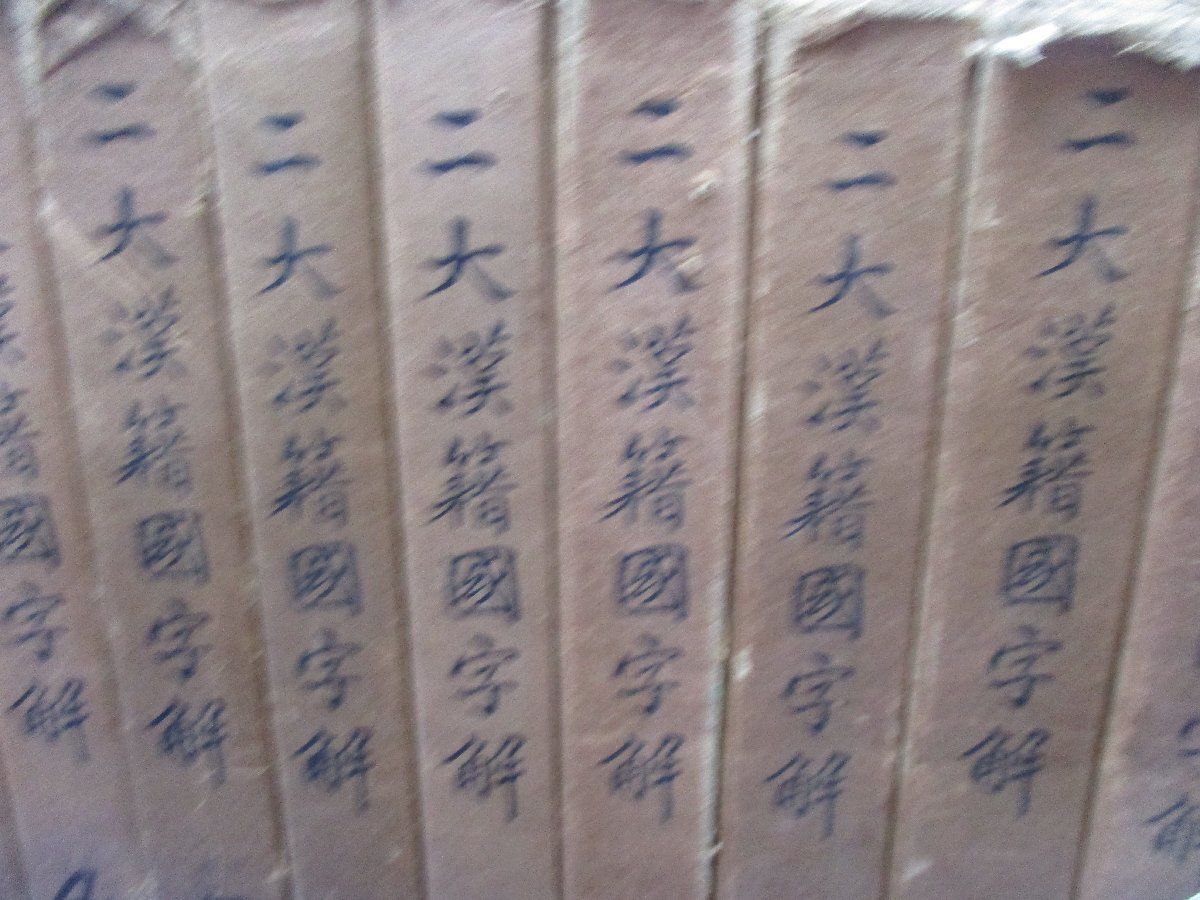 解
二大漢籍國字解
二大漢籍國字解
二大漢籍國字解
二大漢籍國字解
二大漢籍國字解
二大漢籍國字解
漢籍國字解